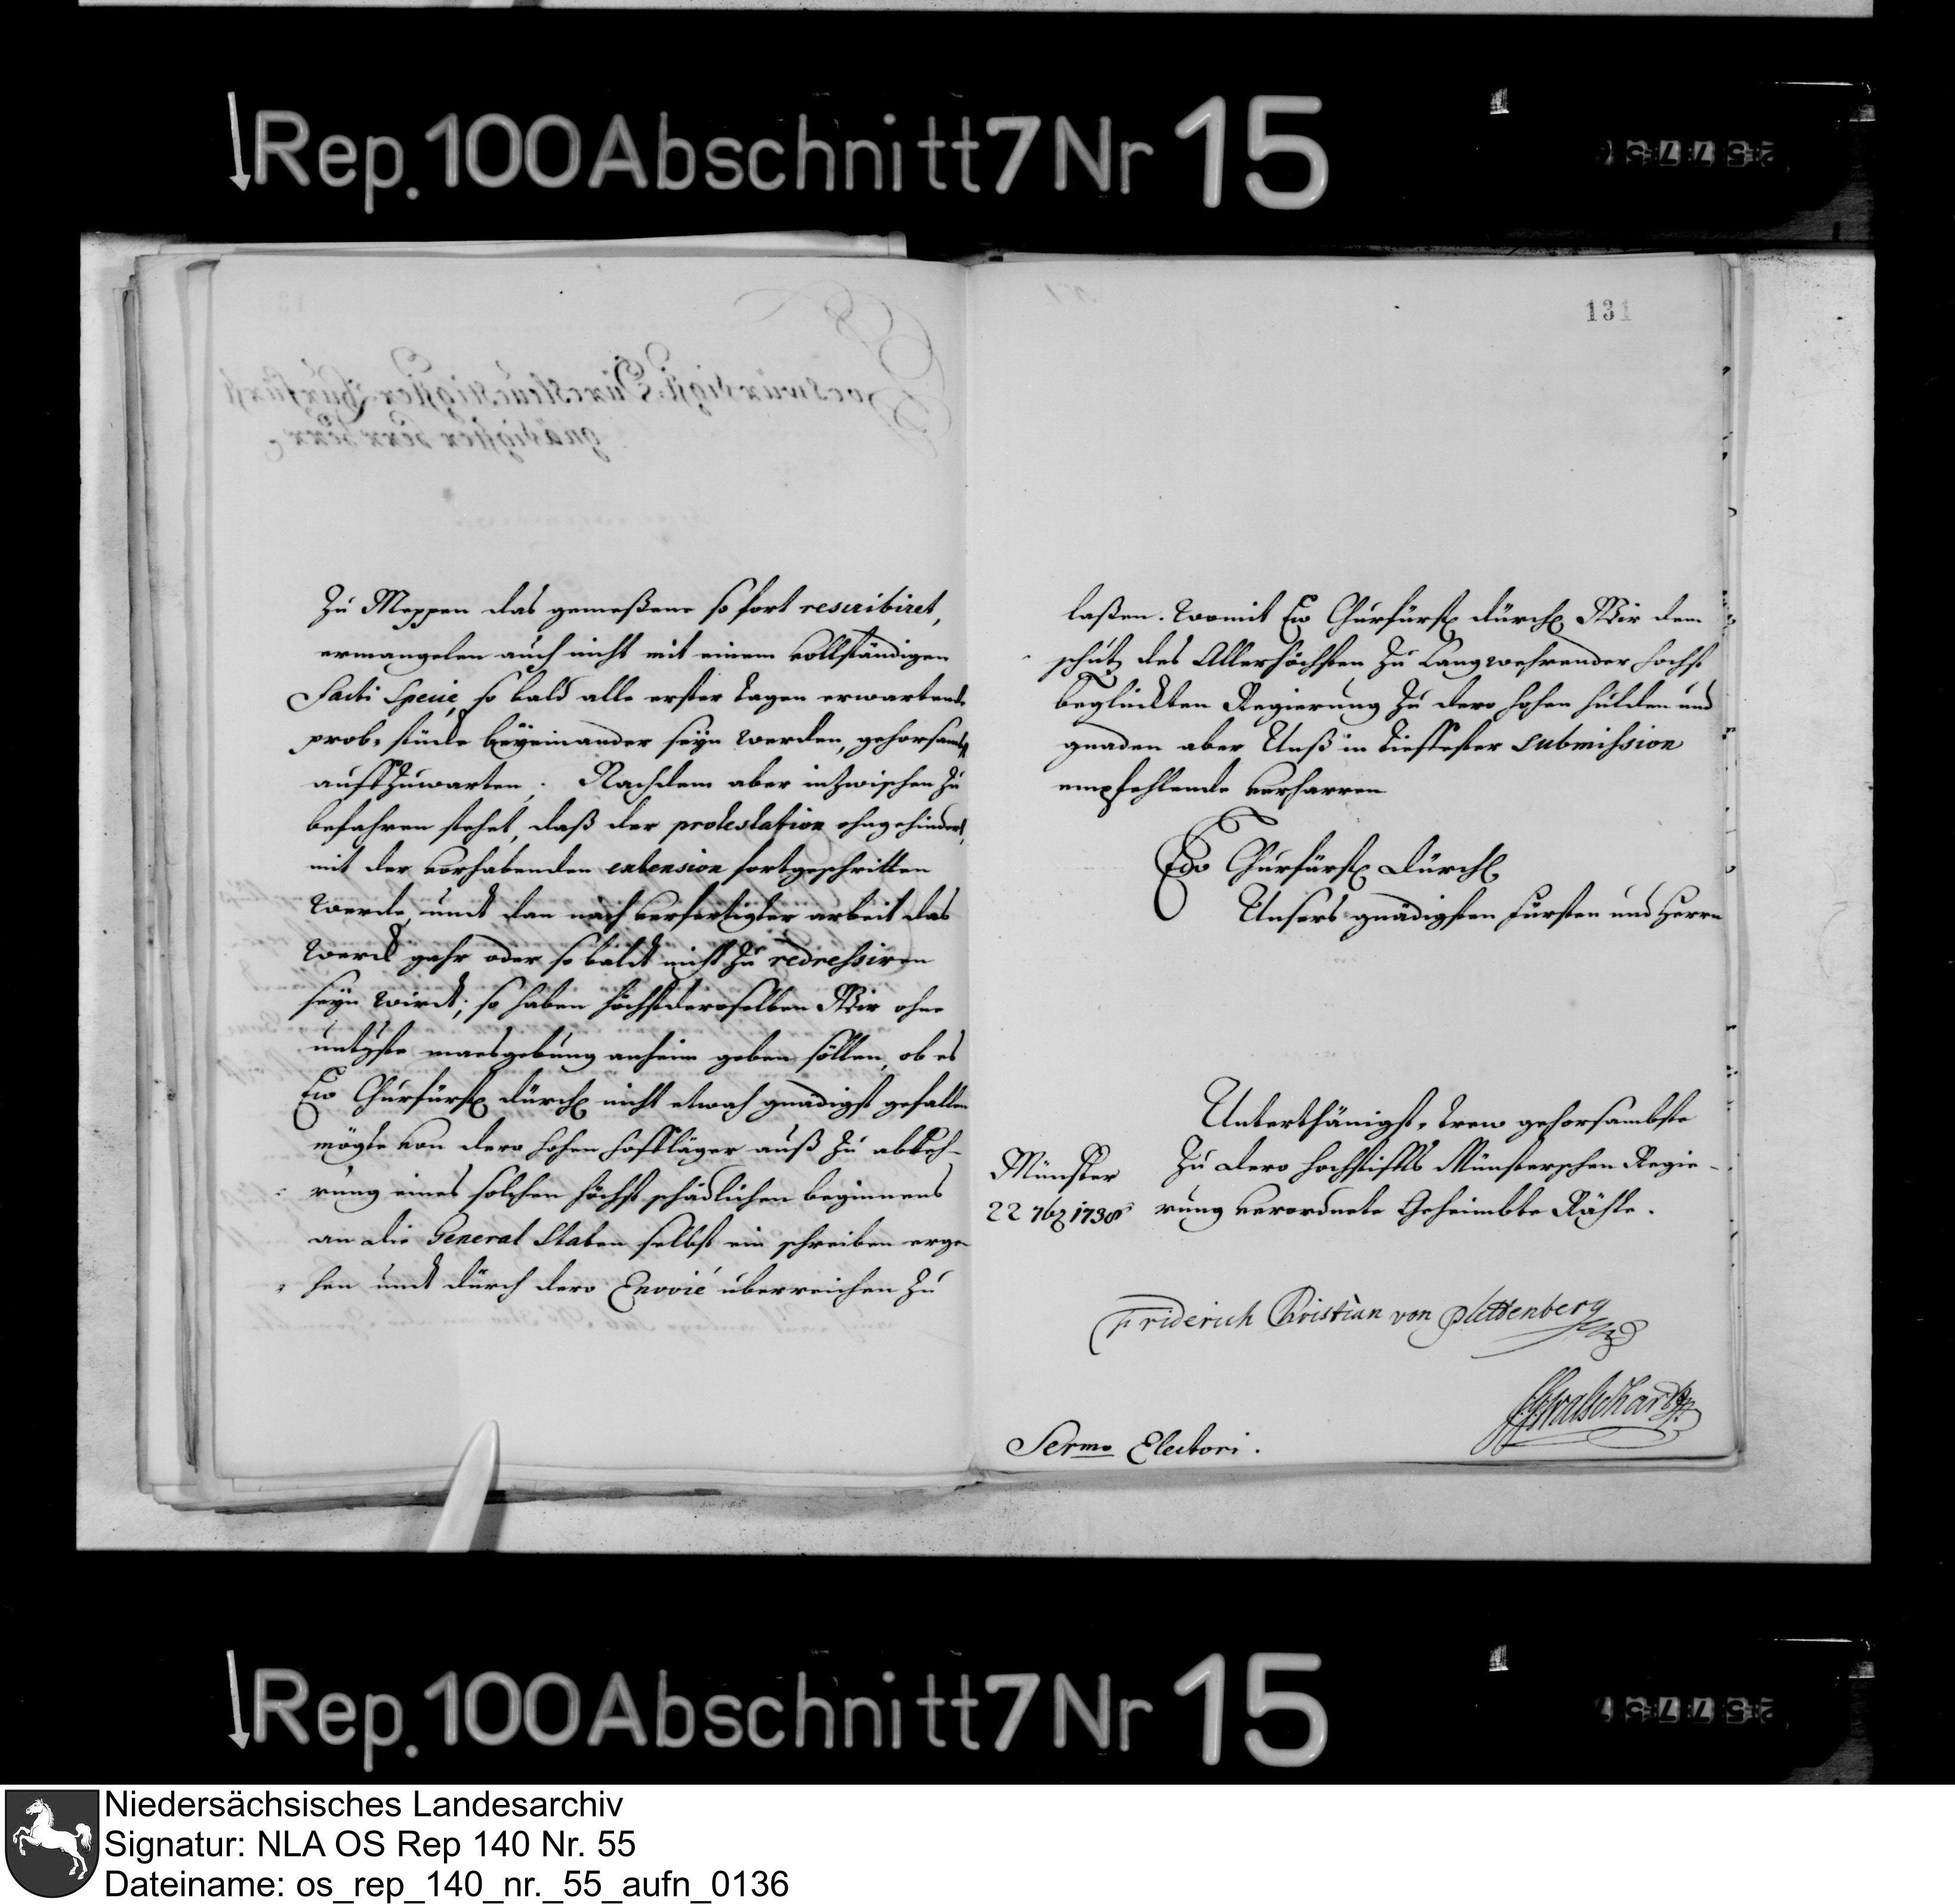 Rep. 100 Abschnitt 7 Nr 15
131
zu Meppen das gemeßene so fort rescribiret,
ermangelen auch nicht mit einem vollständigen
Facti Specie, so bald alle erster tagen erwartende
prob-stücke beyeinander seyn werden, gehorsambst
auffzuwarten. Nachdem aber inzwischen zu
befahren stehet, daß der protestation ohngehindert,
mit der vorhabenden extension fortgeschritten
werde, undt dan nach verfertigter arbeit das
werck gahr oder so baldt nicht zu redressiren
seyn wirdt; so haben höchstderoselben Wir ohne
untgste maesgebung anheim geben söllen, ob es
Ew Churfürstl dürchl nicht etwah gnädigst gefallen
mögte von dero hohen hofflager auß zu abkeh-
rung eines solchen höchst schädlichen beginnens
an die General Staten selbst ein schreiben erge-
hen undt dürch dero Envoié überreichen zu
laßen. womit Ew Churfürstl dürchl Wir dem
schütz des Allerhöchsten zu langwehrender höchst
beglückten Regierung zu dero hohen hulden und
gnaden aber Unß in tieffester submission
empfehlende verharren
Ew Churfürstl Dürchl
Unsers gnädigsten Fürsten und Herrn
Unterthänigst-trew gehorsambste
zu dero hochstiffts Münsterschen Regie-
rung verordnete Geheimbte Räthe.
Münster
22 7b 1738
Friderich Christian von Plettenberg
Sermo Electori.
Rep. 100 Abschnitt 7 Nr 15
Niedersächsisches Landesarchiv
Signatur: NLA OS Rep 140 Nr. 55
Dateiname: os_rep_140_nr._55_aufn_0136